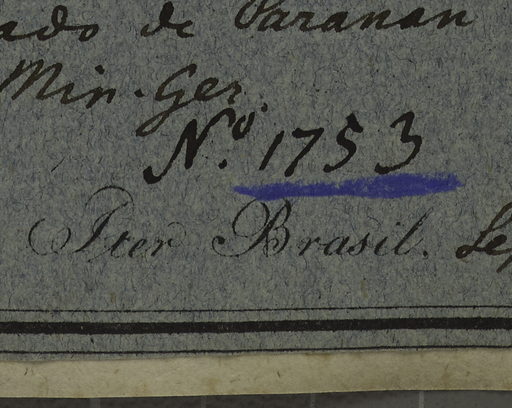 ado de Paranan
Min. Ger.
N.º 1753
Iter Brasil. Sep